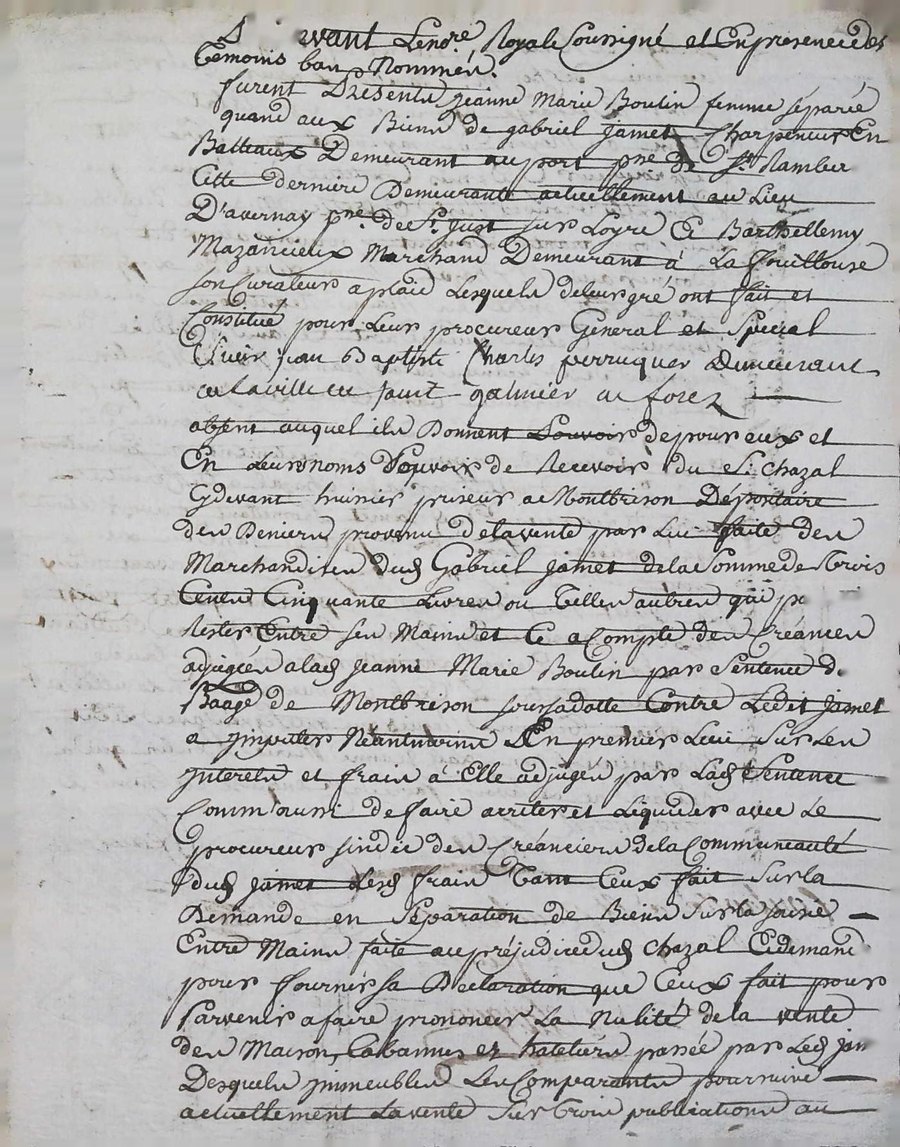 Par devant Le no.re Royal Soussigné et En presence des
Temoins bas Nommés.
furent Presents jeanne Marie Boulin femme séparée
quand aux Biens de gabriel jamet Charpentier En
Batteaux Demeurant au port p.ne de St Rambert
Cette derniere Demeurante actuellement au Lieu
D'avernay p.ne de St. just sur Loyre Et Barthellemy
Mazancieux Marchand Demeurant à La fouillouse
son Curateur a plaid Lesquels de leur gré ont fait et
Constitué pour Leur procureur General et Special
Sieur jean Baptiste Charles perruquier Demeurant
en la ville de saint galmier en forez
absent auquel ils Donnent Pouvoir de pour eux et
En Leurs noms Pouvoir de Recevoir du Sr. Chazal
Cydevant huissier priseur de Montbrison Dépositaire
des Deniers provenu de la vente par Lui faite des
Marchandises dud Gabriel jamet de la Somme de Trois
Cents Cinquante Livres ou Telles autres qui p
Rester Entre ses Mains et Ce a Compte des Créances
adjugées a lad jeanne Marie Boulin par Sentence d.
Baage de Montbrison sous sa datte Contre Ledit jamet
a jmputer Néantmoins En premier Lieu Sur Les
jnterets et frais à Elle adjugés par Lad Sentence
Comm'aussi de faire arreter et Liquider avec Le
procureur sindic des Créanciers de la Communeauté
dud jamet Lesd frais Tant Ceux fait Sur la
Demande en Séparation de Biens Sur la saisie
Entre Mains faite au préjudice dud Chazal Et demand
pour fournir sa Déclaration que Ceux fait pour
Parvenir a faire prononcer La Nulité de la vente
des Maison, Cabannes et hateliers passée par Led jam
Desquels jmmeubles Les Comparants poursuive
actuellement La vente Sur Trois publications au